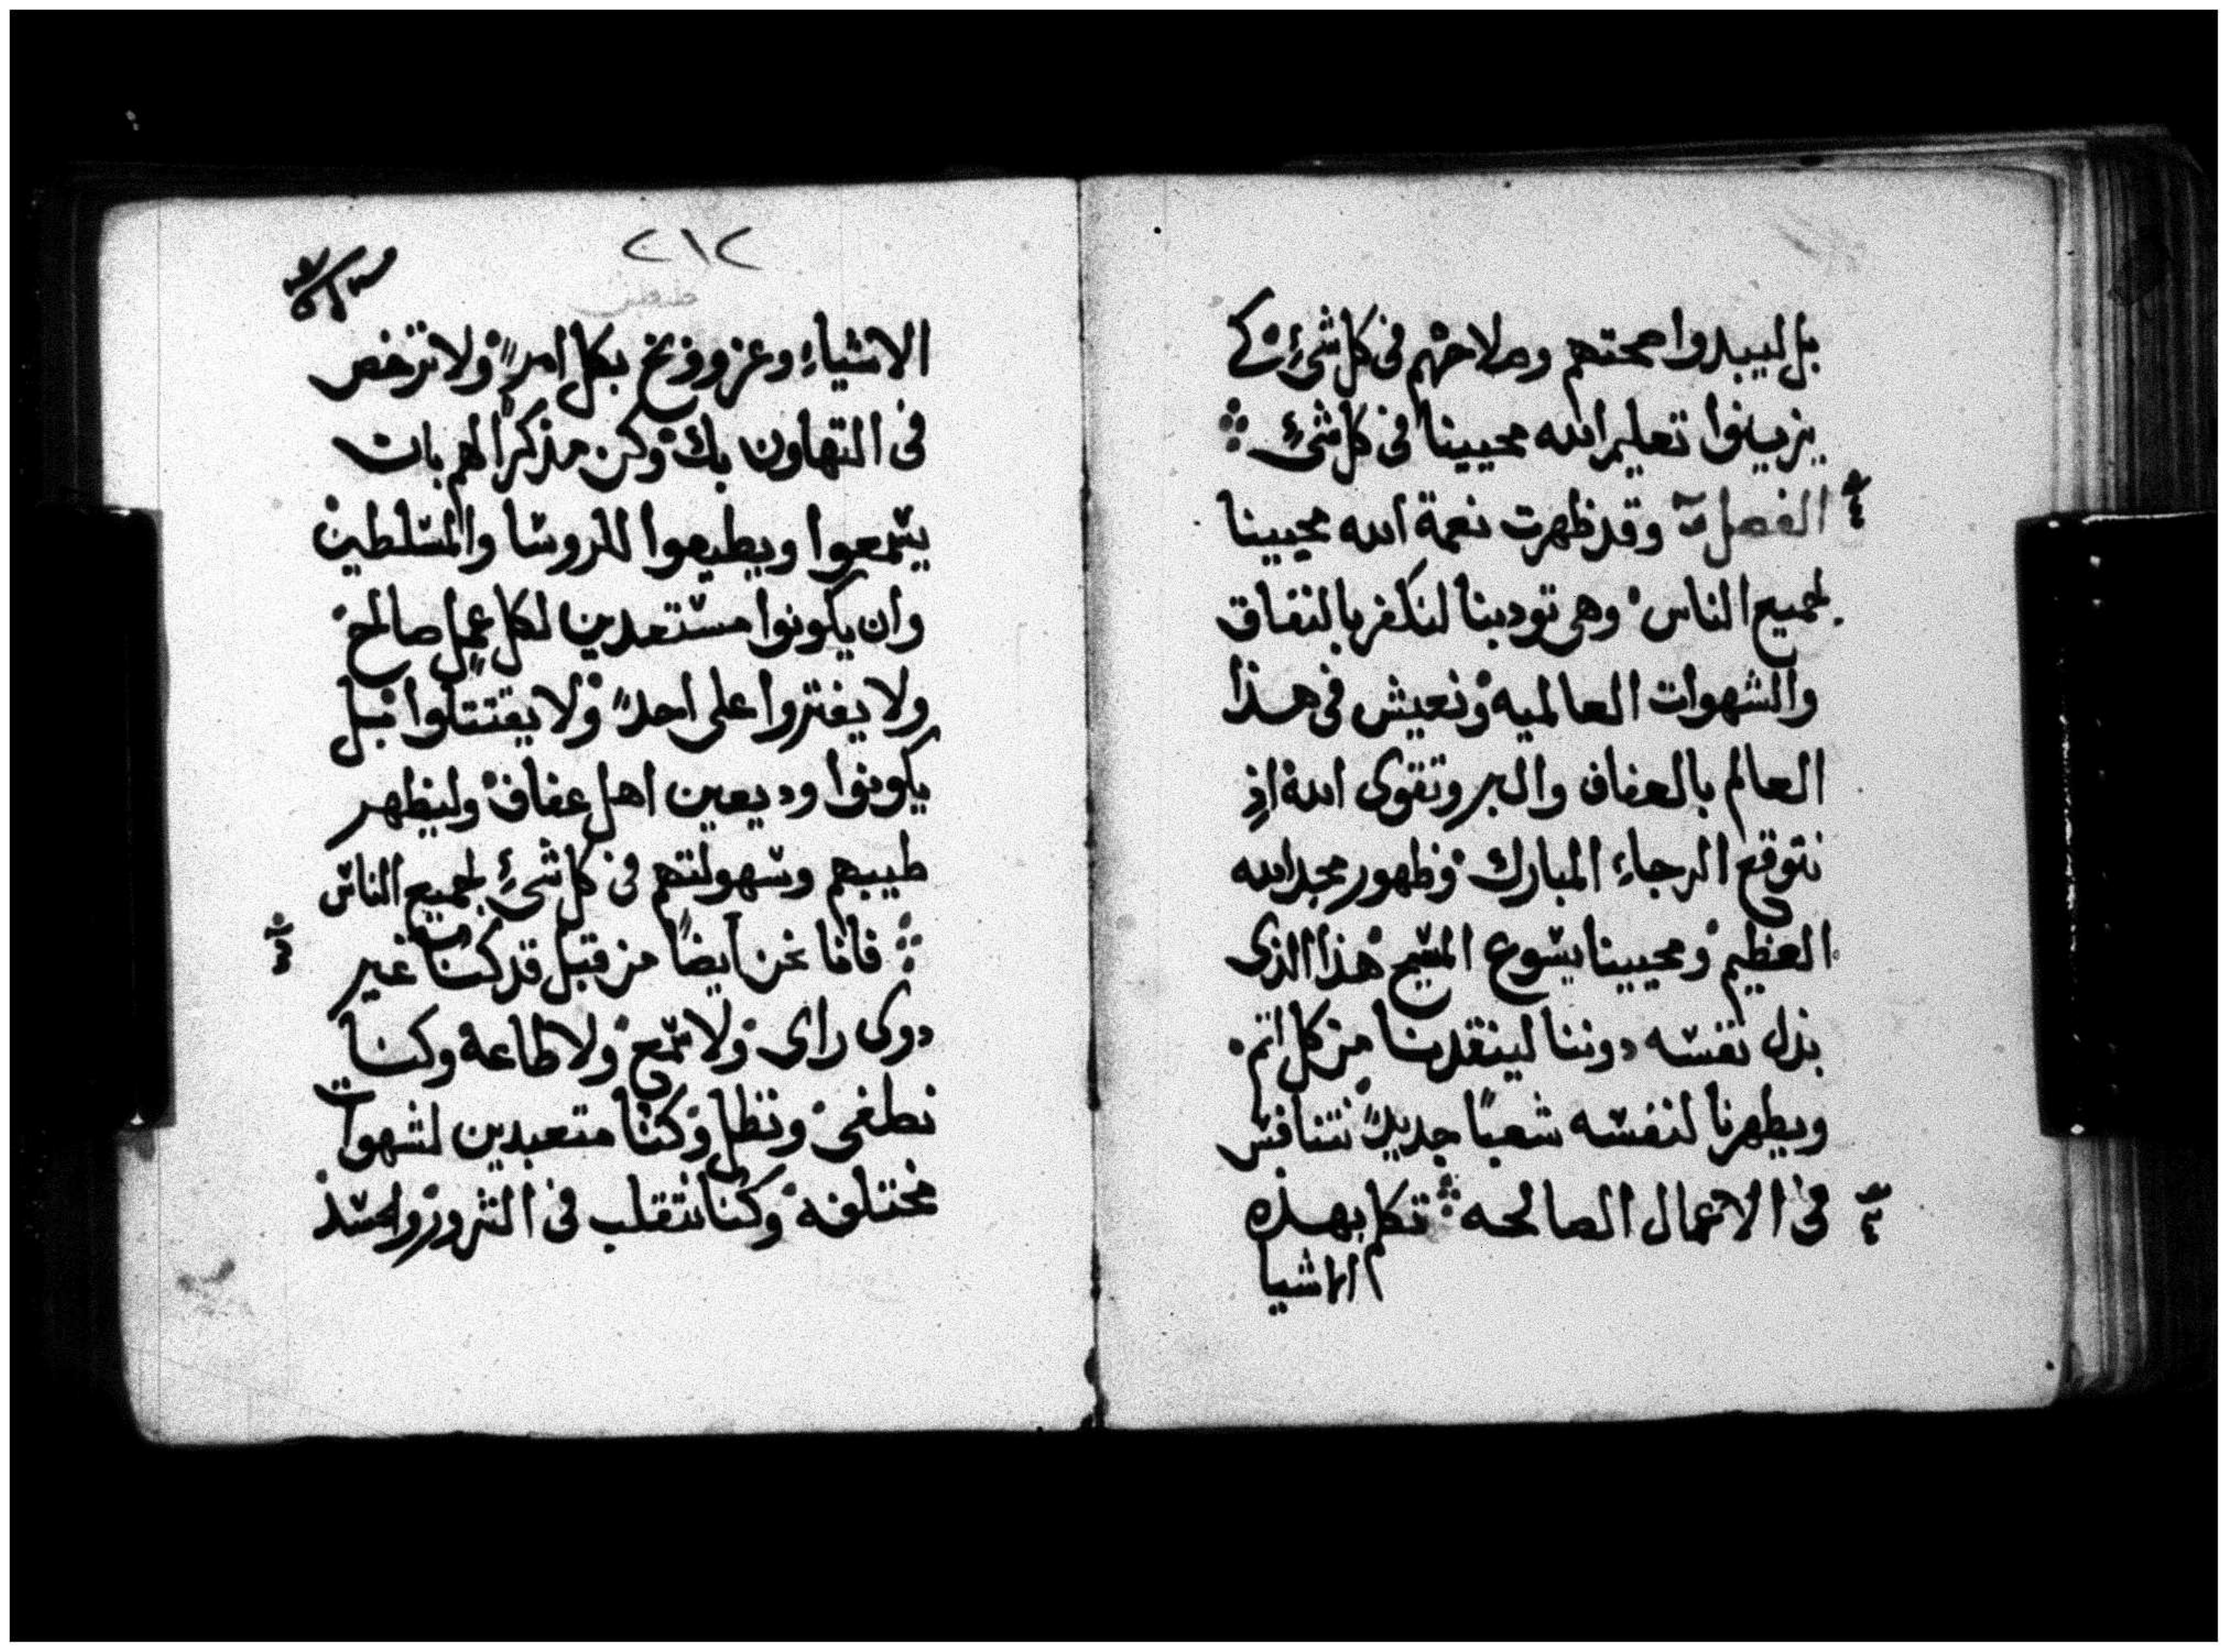 بل ليبدوا محتهم وصلاحهم فى كل شئ كى
يزينوا تعليم الله محيينا فى كل شئ
الفصل وقد ظهرت نعمة الله محيينا
لجميع الناس وهى تودبنا لنكفر بالنفاق
والشهوات العالميه ونعيش فى هذا
العالم بالعفاف والبر وتقوى الله اذ
نتوقع الرجاء المبارك وظهور مجد الله
العظيم ومحيينا يسوع المسيح هذا الذى
بذل نفسه دوننا لينقذنا من كل اثم
ويطهرنا لنفسه شعبًا جديدًا نتنافس
فى الاعمال الصالحه تكلم بهذه
الاشيا
٢١٢
الاشياء وعز ووبخ بكل امر ولا ترخص
فى التهاون بك وكن مذكرًا لهم بان
يسمعوا ويطيعوا للروسا والمسلطين
وان يكونوا مستعدين لكل عمل صالح
ولا يفتروا على احد ولا يقتتلوا بل
يكونوا وديعين اهل عفاف وليظهر
طيبهم وسهولتهم فى كل شئ لجميع الناس
فانا نحن ايضًا من قبل قد كنا غير
دوى راى ولا سمع ولا طاعة وكنا
نطغى ونظل وكنا متعبدين لشهوات
مختلفه وكنا نتقلب فى الشرور والحسد